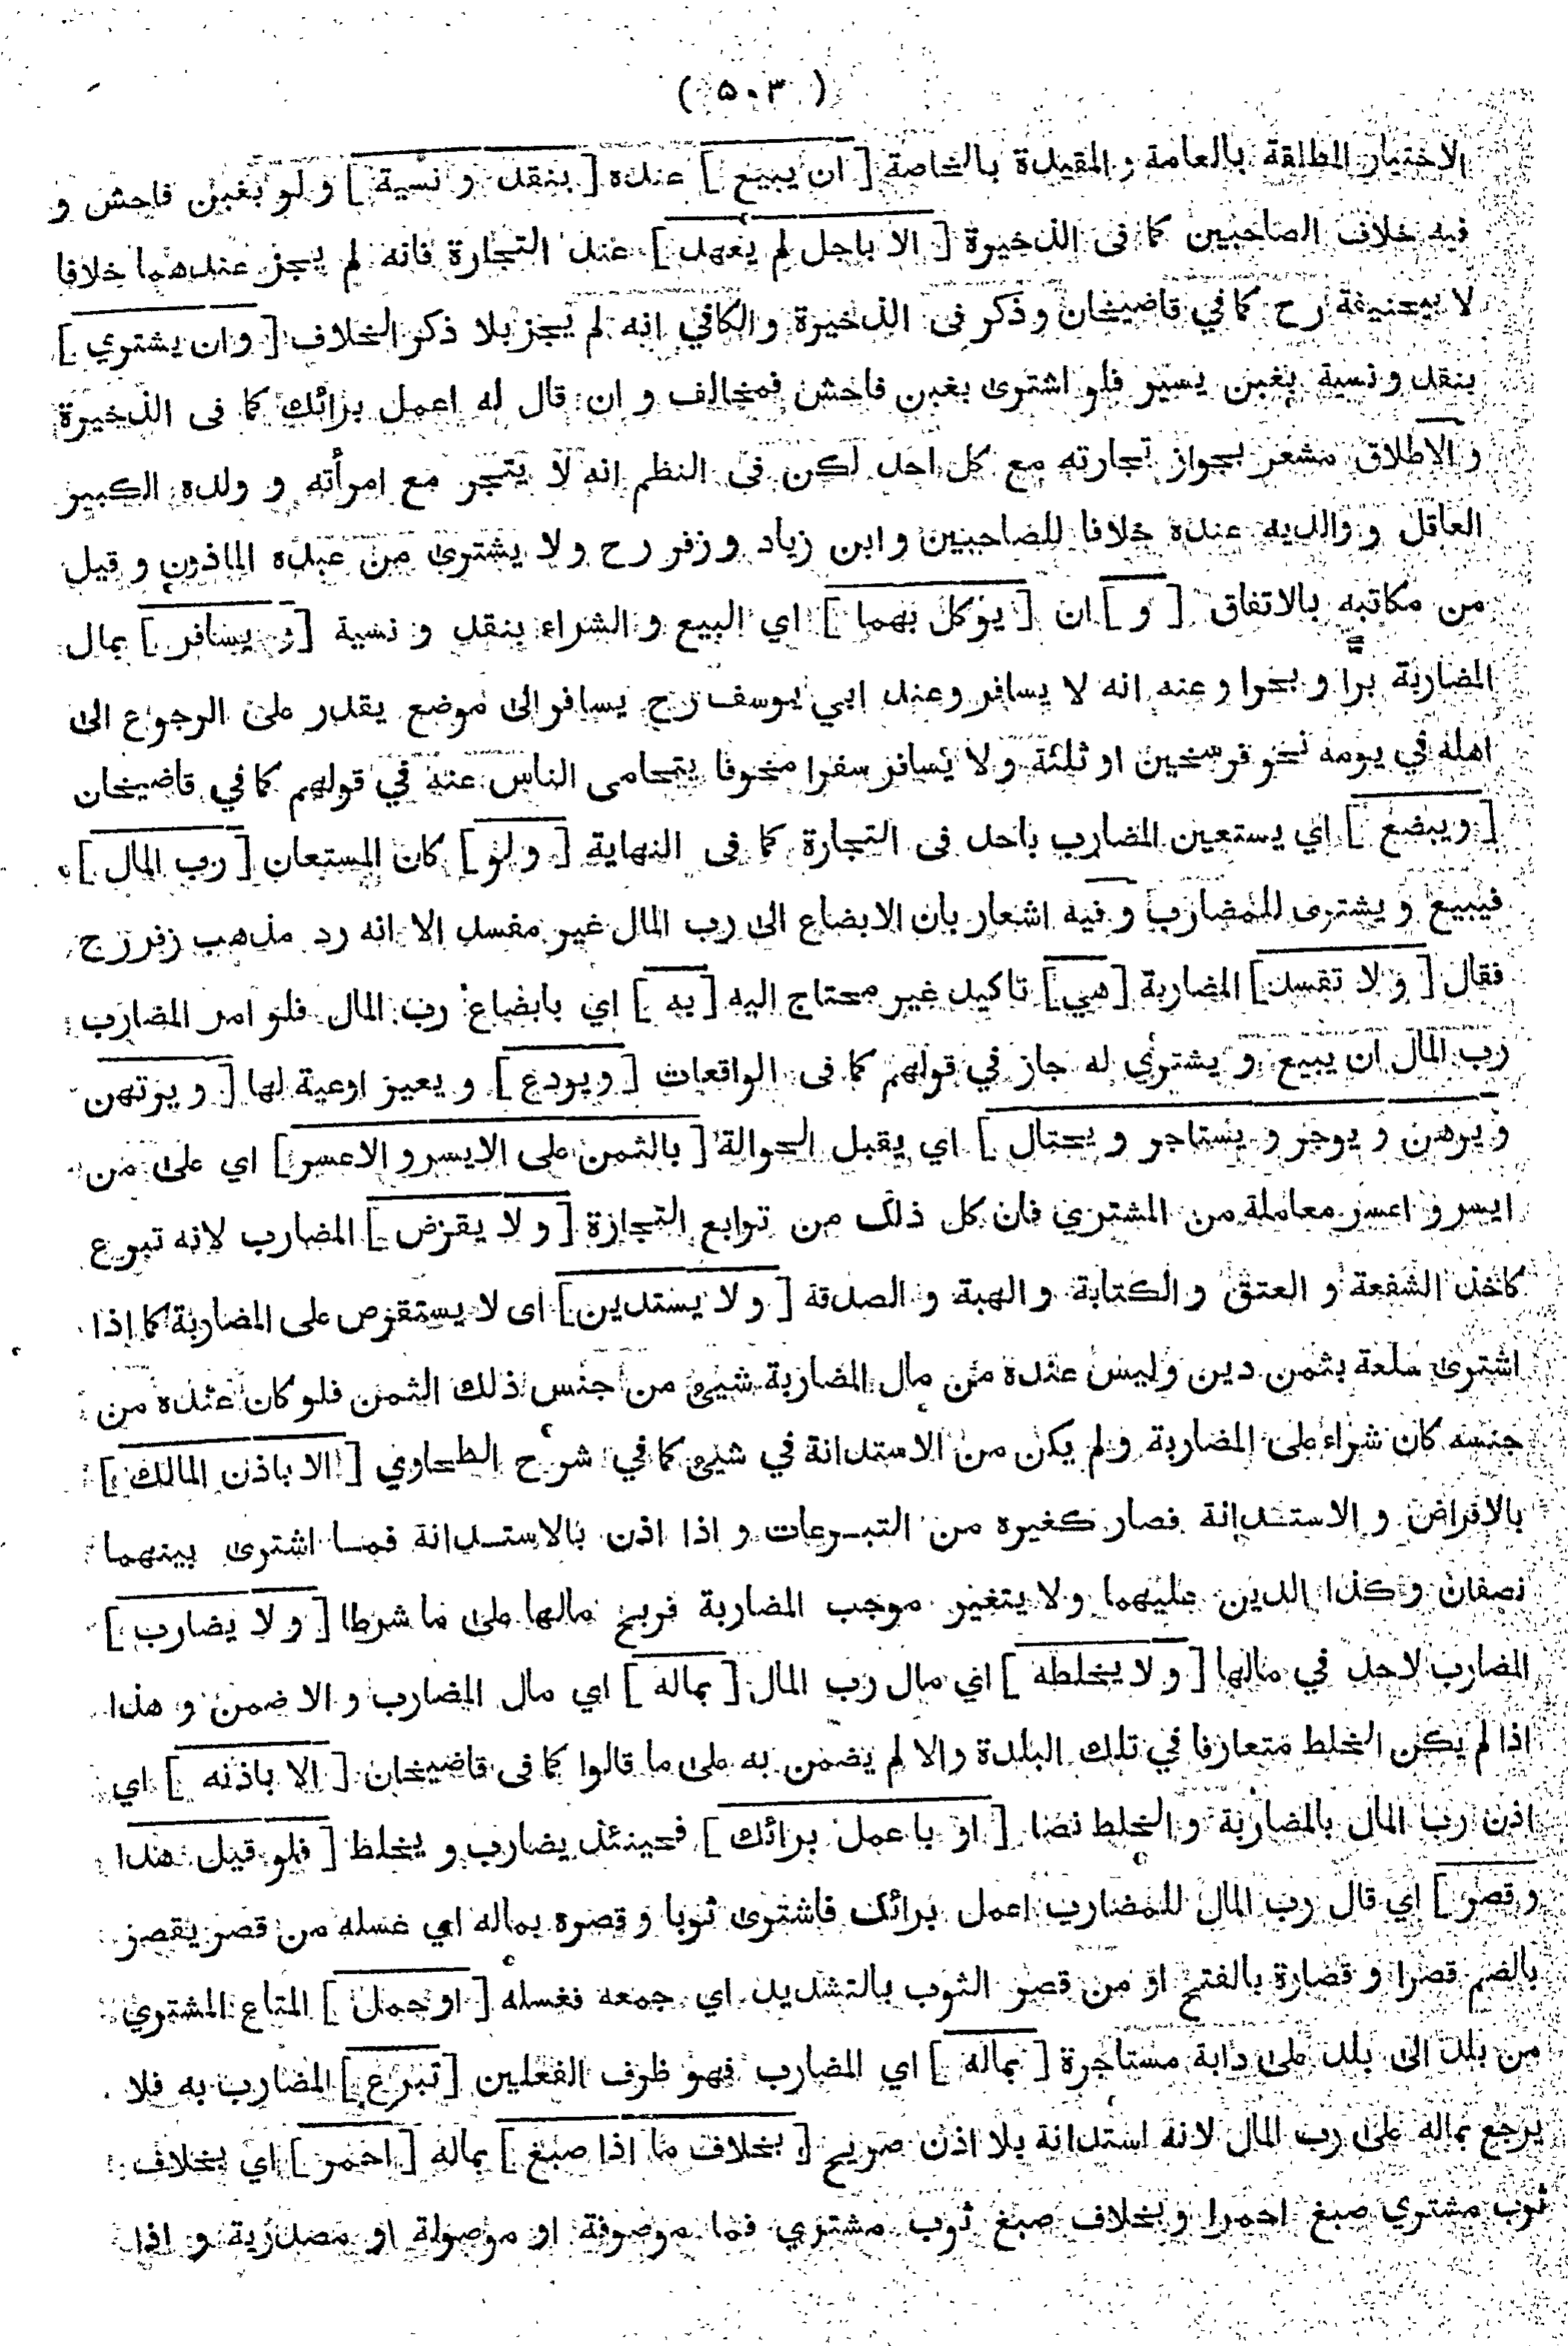 ( ٥٠٣ )
الاختيار المطلقة بالعامة و المقيدة بالخاصة [ ان يبيع ] عنده [ بنقد و نسية ] و لو بغبن فاحش و
فيه خلاف الصاحبين كما فى الذخيرة [ الا باجل لم يعهد ] عند التجارة فانه لم يجز عندهما خلافا
لابيحنيفة رح كما في قاضيخان و ذكر فى الذخيرة و الكافي انه لم يجز بلا ذكر الخلاف [ و ان يشتري ]
بنقد و نسية بغبن يسير فلو اشترى بغبن فاحش فمخالف و ان قال له اعمل برائك كما فى الذخيرة
و الاطلاق مشعر بجواز تجارته مع كل احد لكن فى النظم انه لا يتجر مع امرأته و ولده الكبير
العاقل و والديه عنده خلافا للصاحبين و ابن زياد و زفر رح و لا يشترى من عبده الماذون و قيل
من مكاتبه بالاتفاق [ و ] ان [ يوكل بهما ] اي البيع و الشراء بنقد و نسية [ و يسافر ] بمال
المضاربة برا و بحرا و عنه انه لا يسافر و عند ابي يوسف رح يسافر الى موضع يقدر على الرجوع الى
اهله في يومه نحو فرسخين او ثلثة و لا يسافر سفرا مخوفا يتحامى الناس عنه في قولهم كما في قاضيخان
[ و يبضع ] اي يستعين المضارب باحد فى التجارة كما فى النهاية [ و لو ] كان المستعان [ رب المال ]
فيبيع و يشترى للمضارب و فيه اشعار بان الابضاع الى رب المال غير مفسد الا انه رد مذهب زفر رح
فقال [ و لا تفسد ] المضاربة [ هي ] تاكيد غير محتاج اليه [ به ] اي بابضاع رب المال فلو امر المضارب
رب المال ان يبيع و يشتري له جاز في قولهم كما فى الواقعات [ و يودع ] و يعير اوعية لها [ و يرتهن
و يرهن و يوجر و يستاجر و يحتال ] اي يقبل الحوالة [ بالثمن على الايسر و الاعسر ] اي على من
ايسر و اعسر معاملة من المشتري فان كل ذلك من توابع التجارة [ و لا يقرض ] المضارب لانه تبرع
كاخذ الشفعة و العتق و الكتابة و الهبة و الصدقة [ و لا يستدين ] اى لا يستقرض على المضاربة كما اذا
اشترى سلعة بثمن دين و ليس عنده من مال المضاربة شيئ من جنس ذلك الثمن فلو كان عنده من
جنسه كان شراء على المضاربة و لم يكن من الاستدانة في شيئ كما في شرح الطحاوي [ الا باذن المالك ]
بالاقراض و الاستدانة فصار كغيره من التبرعات و اذا اذن بالاستدانة فما اشترى بينهما
نصفان و كذا الدين عليهما و لا يتغير موجب المضاربة فربح مالها على ما شرطا [ و لا يضارب ]
المضارب لاحد في مالها [ و لا يخلطه ] اي مال رب المال [ بماله ] اي مال المضارب و الا ضمن و هذا
اذا لم يكن الخلط متعارفا في تلك البلدة و الا لم يضمن به على ما قالوا كما فى قاضيخان [ الا باذنه ] اي
اذن رب المال بالمضاربة و الخلط نصا [ او باعمل برائك ] فحينئذ يضارب و يخلط [ فلو قيل هذا
و قصر ] اي قال رب المال للمضارب اعمل برائك فاشترى ثوبا و قصره بماله اي غسله من قصر يقصر
بالضم قصرا و قصارة بالفتح او من قصر الثوب بالتشديد اي جمعه فغسله [ او حمل ] المتاع المشتري
من بلد الى بلد على دابة مستاجرة [ بماله ] اي المضارب فهو ظرف الفعلين [ تبرع ] المضارب به فلا
يرجع بماله على رب المال لانه استدانة بلا اذن صريح [ بخلاف ما اذا صبغ ] بماله [ احمر ] اي بخلاف
ثوب مشتري صبغ احمرا و بخلاف صبغ ثوب مشتري فما موصوفة او موصولة او مصدرية و اذا